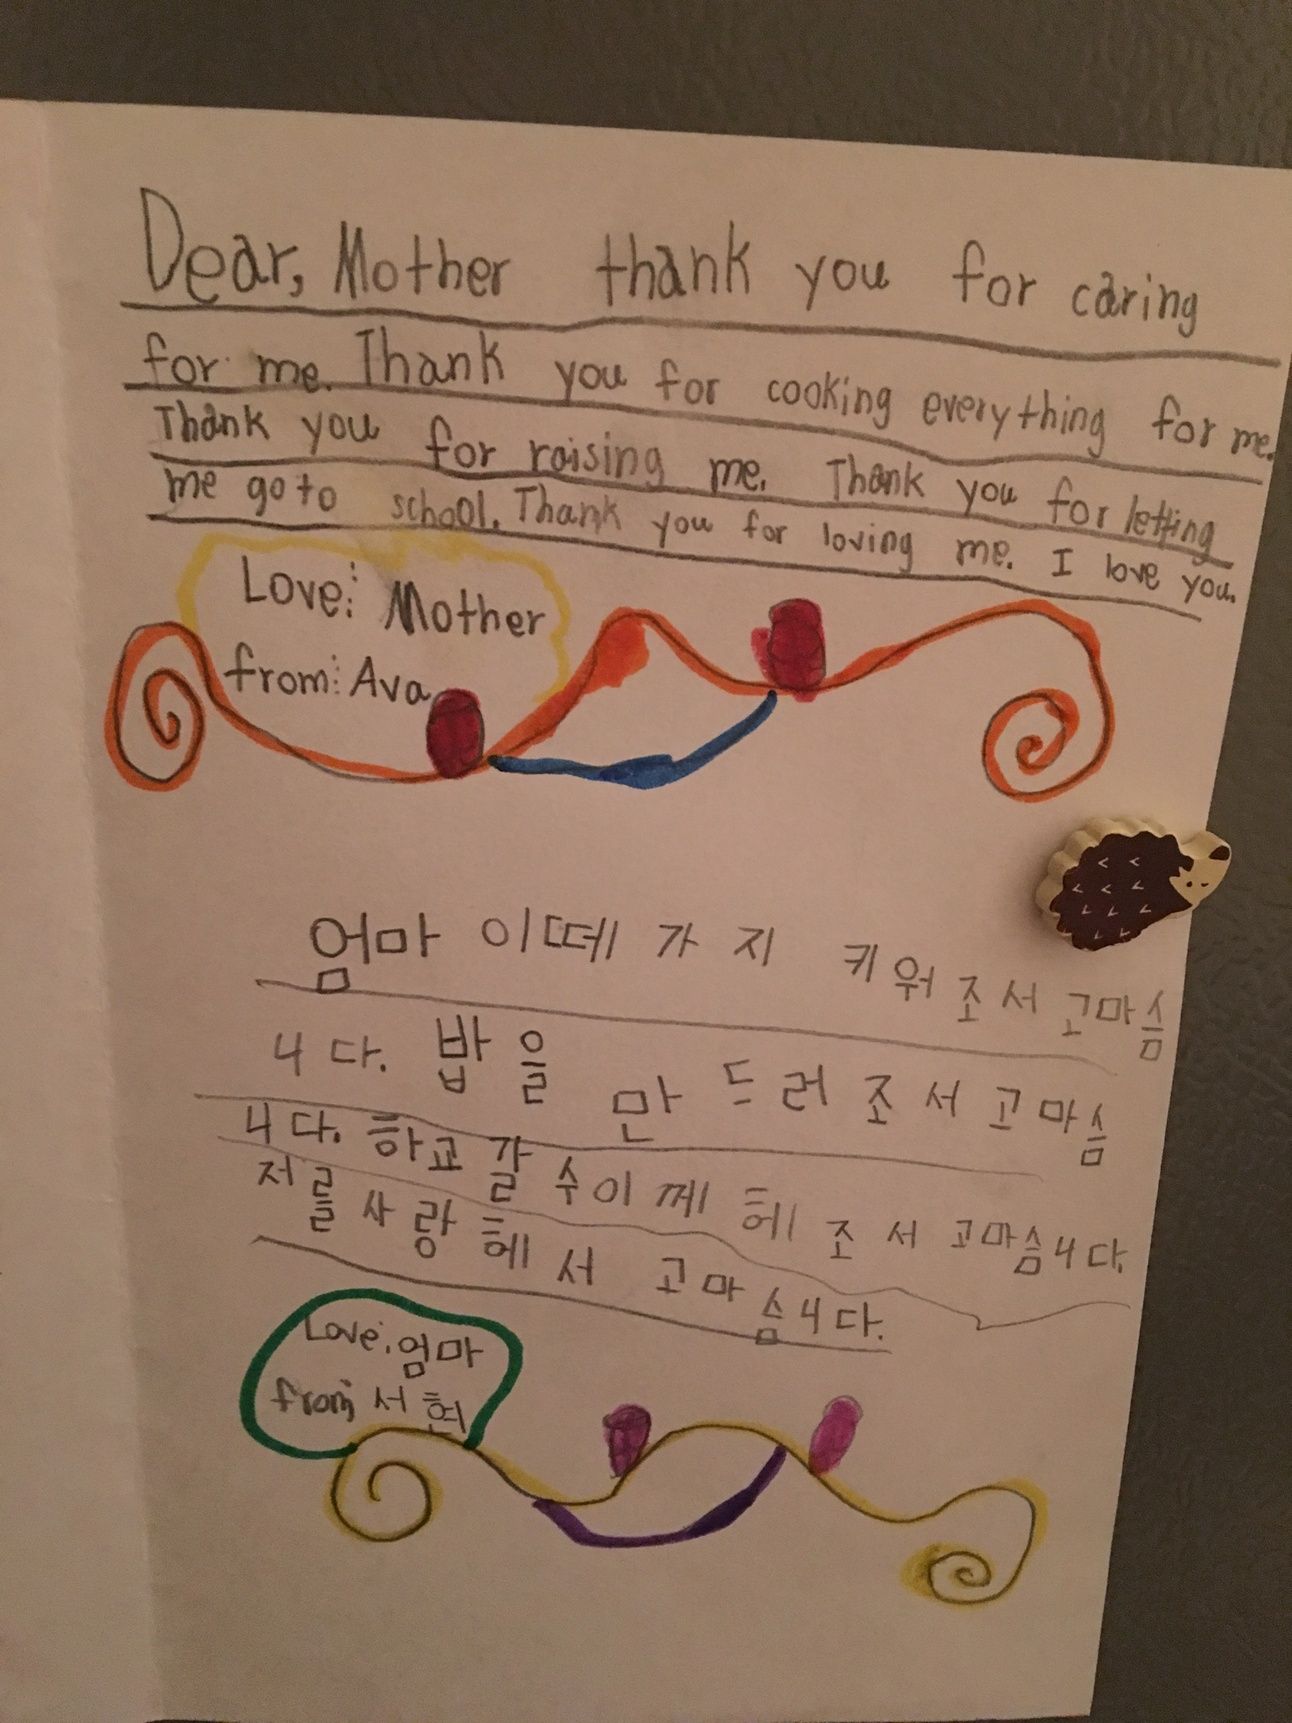 Dear, Mother thank you for caring
for me. Thank you for cooking everything for me.
Thank you for raising me. Thank you for letting
me go to school. Thank you for loving me. I love you.
Love: Mother
from: Ava
엄마 이떼 가 지 키워 조서 고마슴
니다. 밥을 만드러 조서 고마슴
니다. 하교 갈 수이께 헤 조서 고마슴니다.
저를 사랑헤서 고마슴니다.
Love: 엄마
from 서현